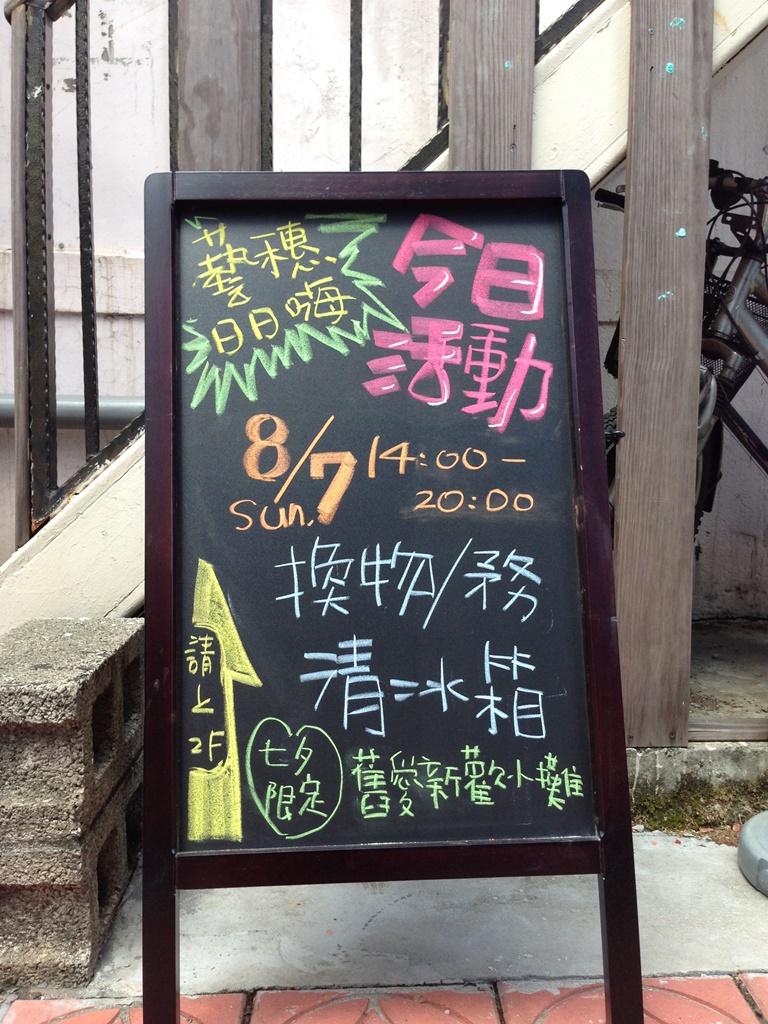 藝穗
日日嗨
今日
活動
8/7 14:00-
sun. 20:00
換物/務
清冰箱
請上
2F
七夕
限定
舊愛新歡小攤